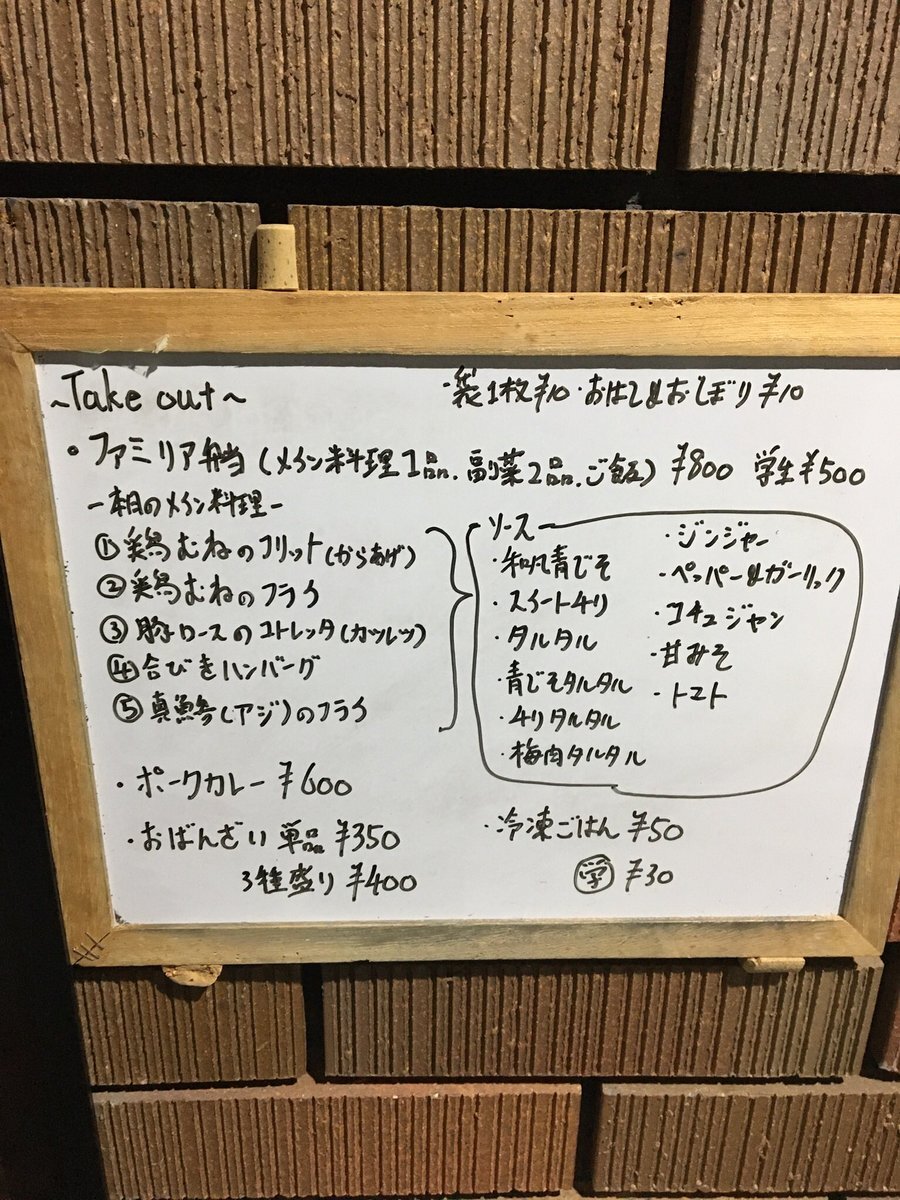 ~Take out~
・袋1枚¥10・おはし&おしぼり¥10
・ファミリア弁当(メイン料理1品、副菜2品、ご飯) ¥800 学生¥500
-本日のメイン料理-
①鶏むねのフリット(からあげ)
②鶏むねのフライ
③豚ロースのコトレッタ(カツレツ)
④合びきハンバーグ
⑤真鯵(アジ)のフライ
ソース
・和風青じそ
・スイートチリ
・タルタル
・青じそタルタル
・チリタルタル
・梅肉タルタル
・ジンジャー
・ペッパー&ガーリック
・コチュジャン
・甘みそ
・トマト
・ポークカレー ¥600
・おばんざい 単品 ¥350
3種盛り ¥400
・冷凍ごはん ¥50
学 ¥30